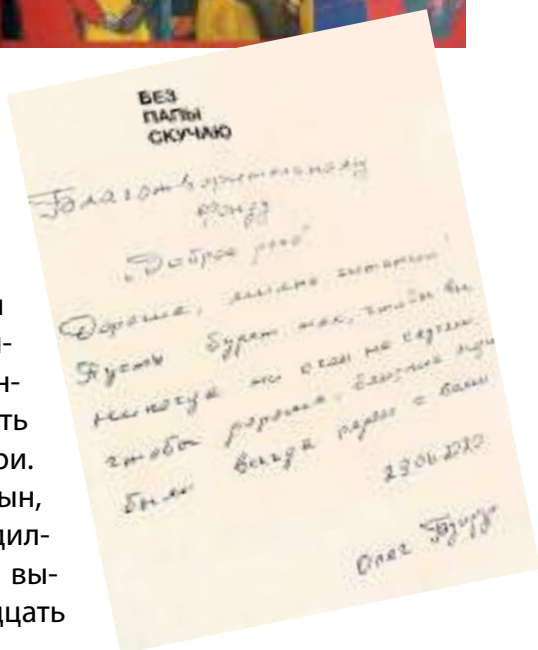 БЕЗ
ПАПЫ
СКУЧАЮ
Благотворительному
фонду
"Доброе
Дорогие, милые читатели!
Пусть будет так, чтобы вы
никогда ни о ком не скучали
чтобы близкие люди
были всегда рядом с вами
23.06.2020
Олег
и-
н-
ть
ри.
ын,
дил-
вы-
дцать